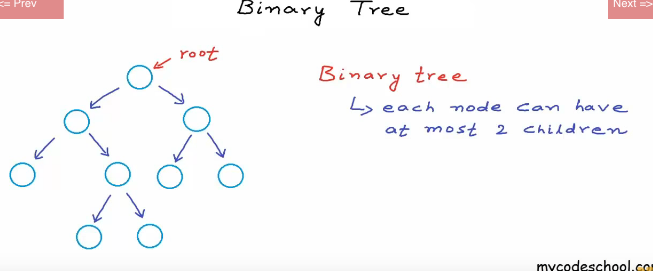 <= Prev
Binary Tree
Next =>
root
Binary tree
↳ each node can have
at most 2 children
mycodeschool.com